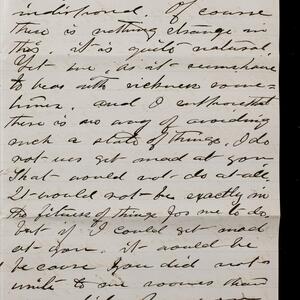 indisposed. Of course
there is nothing strange in
this, it is quite natural.
Yet we, as it seems have
to bear with sickness some-
times. and I
there is no way of avoiding
such a state of things. I do
not get mad at you
That would not do at all.
It would not be exactly in
the fitness of things for me to do
but if I could get mad
at you. it would be
because you did not
write to me sooner than